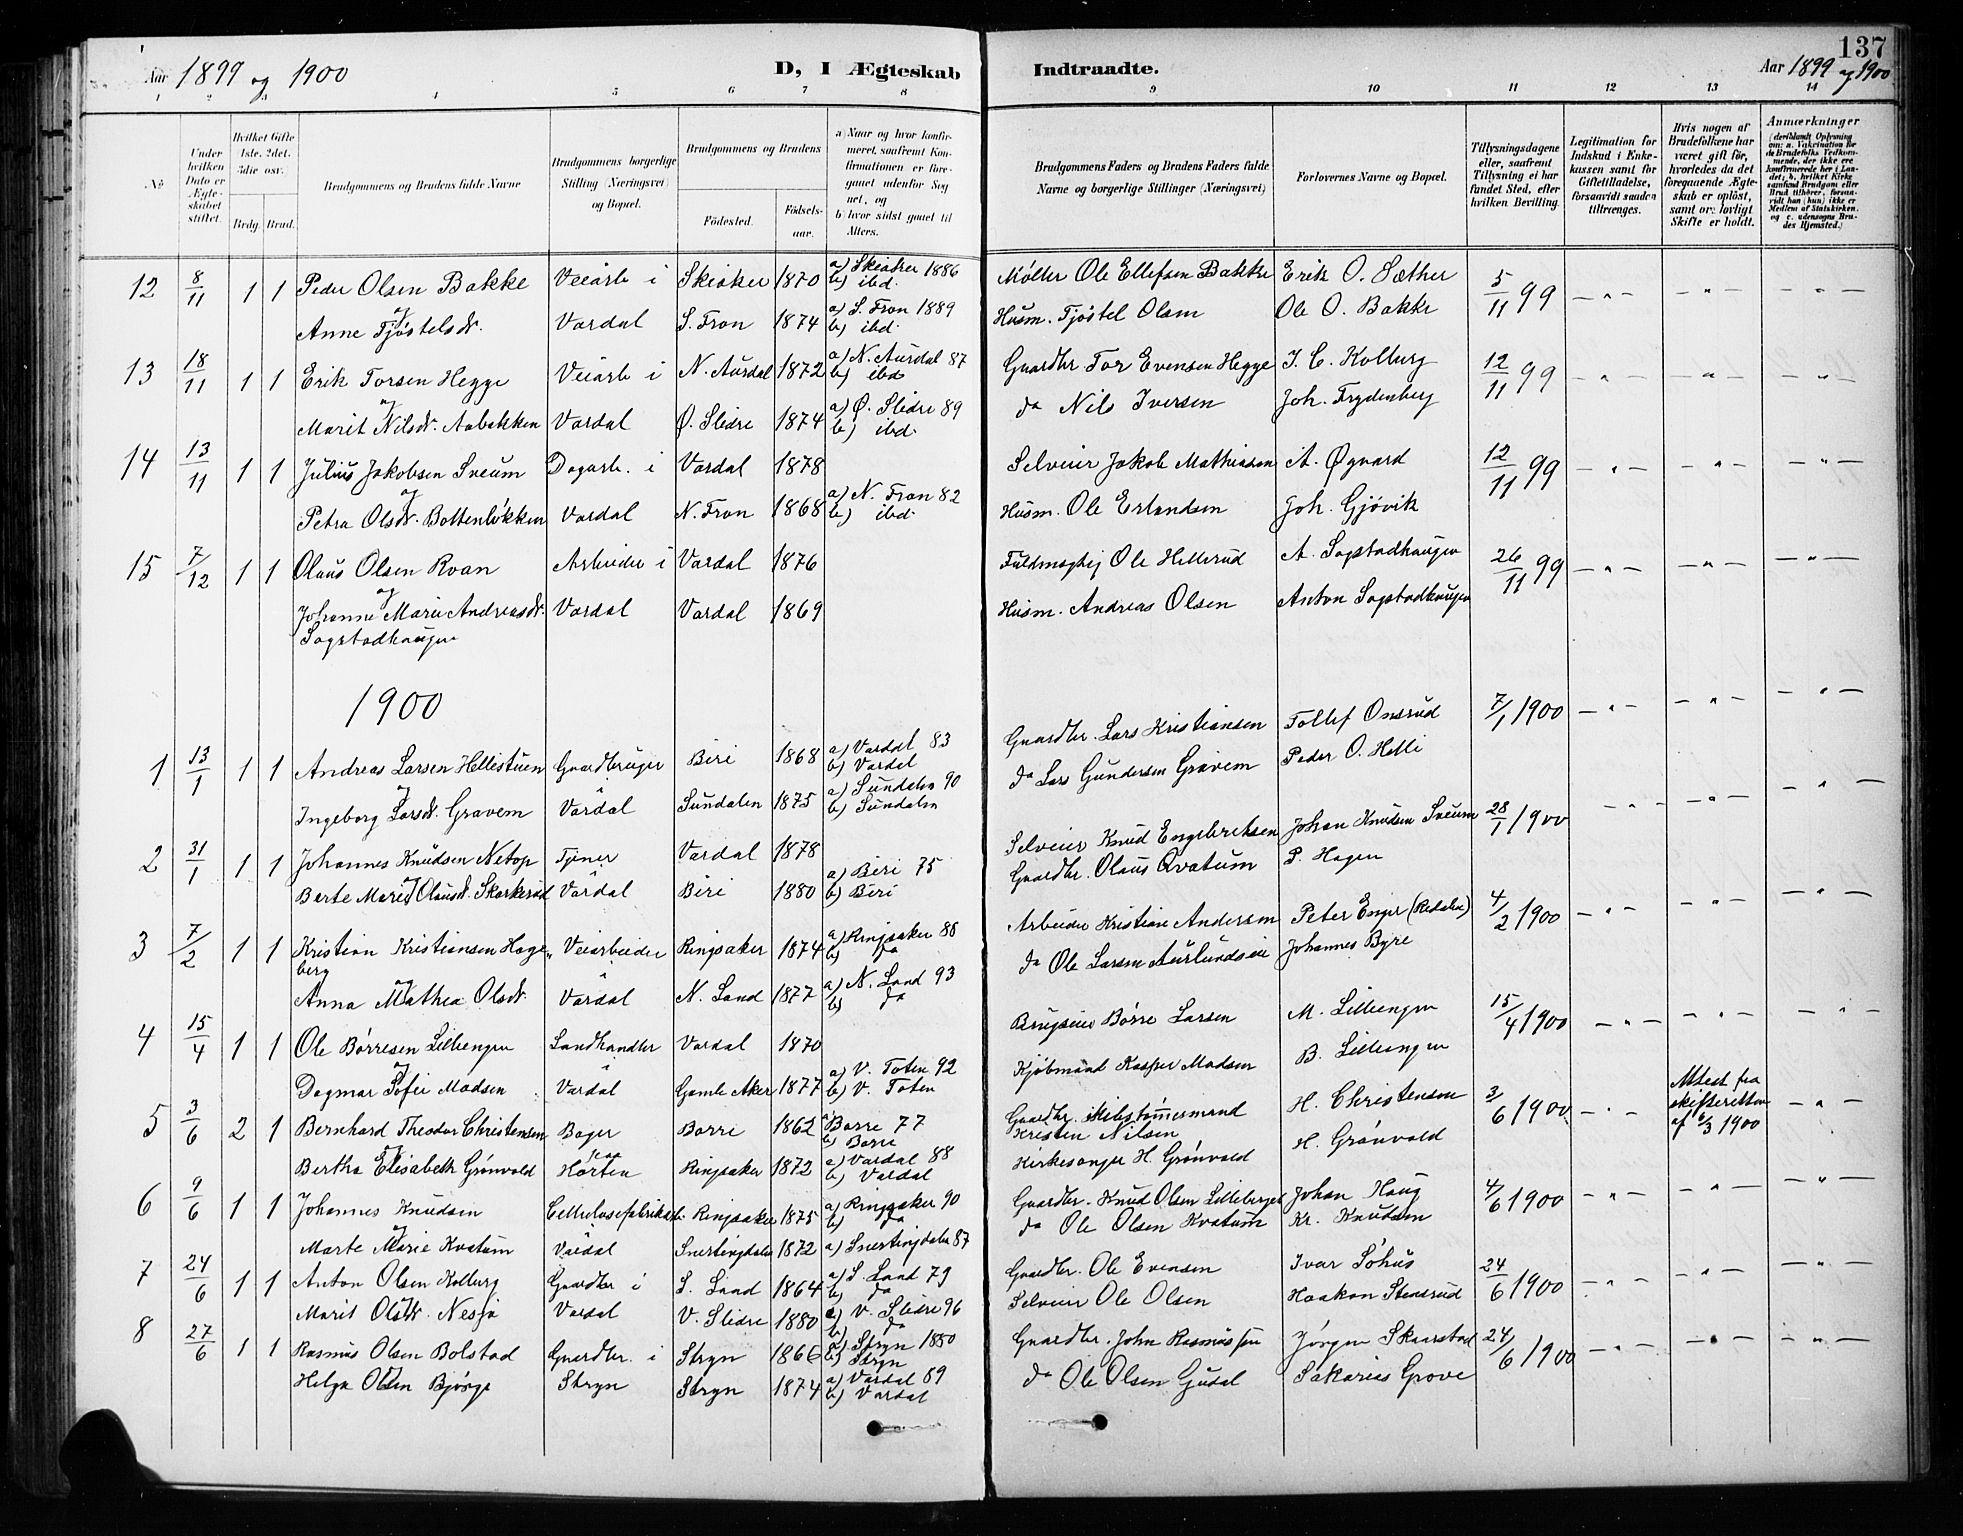 137
Aar 1899 og 1900
D, I Ægteskab Indtraadte.
Aar 1899 og 1900
1 2 3 4 5 6 7 8 9 10 11 12 13 14
No.
Under hvilken Dato er Ægteskabet stiftet.
Hvilket Gifte 1ste, 2det, 3die osv.
Brdg. Brud.
Brudgommens og Brudens fulde Navne
Brudgommens borgerlige Stilling (Næringsvei) og Bopæl.
Brudgommens og Brudens
Fødested. Fødselsaar.
a) Naar og hvor konfirmeret, saafremt Konfirmationen er foregaaet udenfor Sognet, og
b) hvor sidst gaaet til Alters.
Brudgommens Faders og Brudens Faders fulde Navne og borgerlige Stillinger (Næringsvei)
Forlovernes Navne og Bopæl.
Tillysningsdagene eller, saafremt Tillysning ei har fundet Sted, efter hvilken Bevilling.
Legitimation for Indskud i Enkekassen samt for Giftetilladelse, forsaavidt saadan tiltrænges.
Hvis nogen af Brudefolkene har været gift før, hvorledes da det foregaaende Ægteskab er opløst, samt om lovligt Skifte er holdt.
Anmærkninger
(deriblandt Oplysning om: a. Vakcination for de Brudefolks Vedkommende, der ikke ere konfirmerede her i Landet; b. hvilket Kirkesamfund Brudgom eller Brud tilhører, forsaavidt han (hun) ikke er Medlem af Statskirken, og c. udensogns Brudes Hjemsted.)
12 8/11 1 1 Peder Olsen Bakke Veiarb i Skiaker 1870 a) Skiaker 1886 b) ibd. Møller Ole Ellefsen Bakke Erik O. Sæther 5/11 99 — " — — " — — " —
og
Anne Tjøstelsdr. Vardal S. Fron 1874 a) S. Fron 1889 b) ibd. Husm. Tjøstel Olsen Ole O. Bakke
13 18/11 1 1 Erik Torsen Hegge Veiarb i N. Aurdal 1872 a) N. Aurdal 87 b) ibd Gaardbr Tor Evensen Hegge J. C. Kolberg 12/11 99 — " — " — " —
og
Marit Nilsdr. Aabakken Vardal Ø. Slidre 1874 a) Ø. Slidre 89 b) ibd. do Nils Iversen Joh. Frydenberg
14 13/11 1 1 Julius Jakobsen Sveum Dagarb. i Vardal 1878 Selveier Jakob Mathiasen A. Øgaard 12/11 99 — " — — " — — " —
og
Petra Olsdr. Bottenløkken Vardal N. Fron 1868 a) N. Fron 82 b) ibd. Husm. Ole Erlandsen Joh. Gjøvik
15 7/12 1 1 Olaus Olsen Roan Arbeider i Vardal 1876 Fuldmægtig Ole Hellerud A. Sogstadhaugen 26/11 99 — " — — " — — " —
og
Johanne Marie Andreasdr. Vardal Vardal 1869 Husm. Andreas Olsen Anton Sogstadhaugen
Sogstadhaugen
1900
1 13/1 1 1 Andreas Larsen Hellestuen Gaardbruger Biri 1868 a) Vardal 83 b) Vardal Gaardbr. Lars Kristiansen Tollef Onsrud 7/1 1900 — " — — " — — " —
og
Ingeborg Larsdr. Gravem Vardal Sundalen 1875 a) Sundalen 90 b) Sundalen do Lars Gundersen Gravem Peder O. Helli — " — — " — — " —
2 31/1 1 1 Johannes Knudsen Netop Tjener Vardal 1878 Selveier Knud Engebretsen Johan Knudsen Sveum 28/1 1900
og
Berte Marie Olausdr. Skarkerud Vardal Biri 1880 a) Biri 75 b) Biri Gaardbr. Olaus Qvatum P. Hagen
3 7/2 1 1 Kristian Kristiansen Hageberg Veiarbeider Ringsaker 1874 a) Ringsaker 88 b) do Arbeider Kristian Andersen Peter Enger (Redalen) 4/2 1900 — " — — " — — " —
og
Anna Mathea Olsdr. Vardal N. Land 1877 a) N. Land 93 b) do do Ole Larsen Aurlundseie Johannes Byre
4 15/4 1 1 Ole Børresen Lilliengen Landhandler Vardal 1870 Brugseier Børre Larsen M. Lilliengen 15/4 1900 — " — — " — — " —
og
Dagmar Sofie Madsen Vardal Gamle Aker 1877 a) V. Toten 92 b) V. Toten Kjøbmand Kasper Madsen B. Lilliengen
5 3/6 2 1 Bernhard Theodor Christensen Bager Borre 1862 a) Borre 77 b) Borre Gaardbr. Skibstømmermand Kristen Nilsen H. Christensen 3/6 1900 — " — Attest fra skifteretten af 6/3 1900 — " —
og
Bertha Elisabeth Grønvold Horten Ringsaker 1872 a) Vardal 88 b) Vardal Kirkesanger H. Grønvold H. Grønvold
6 9/6 1 1 Johannes Knudsen Cellulosefabrikarb. Ringsaker 1875 a) Ringsaker 90 b) do Gaardbr. Knud Olsen Lilleberget Johan Haug 4/6 1900 — " — — " — — " —
og
Marte Marie Kvatum Vardal Snertingdalen 1872 a) Snertingdalen 87 do Ole Olsen Kvatum Kr. Knudsen
7 24/6 1 1 Anton Olsen Kolberg Gaardbr i S. Land 1864 a) S. Land 79 b) do Gaardbr. Ole Evensen Ivar Søhus 24/6 1900 — " — — " — — " —
og
Marit Olsdr. Nesja Vardal V. Slidre 1880 a) V. Slidre 96 b) do Selveier Ole Olsen Haakon Stensrud
8 27/6 1 1 Rasmus Olsen Bolstad Gaardbr. i Stryn 1866 a) Stryn 1880 b) Stryn Gaardbr. John Rasmussen Jørgen Skaarstad 24/6 1900 — " — — " — — " —
og
Helga Olsen Bjørge Stryn Stryn 1874 a) Vardal 89 b) Vardal do Ole Olsen Gudal Sakarias Grove